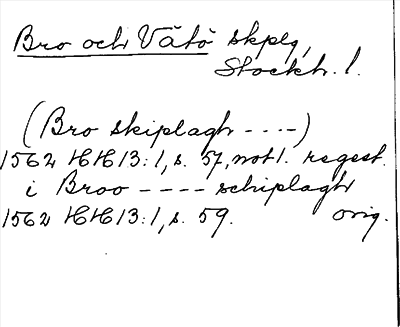 Bro och Vätö skplg,
Stockh. l.
(Bro skiplagh ----)
1562 HH13:1, s. 57, not 1. regest.
i Broo ---- schiplagh
1562 HH13:1, s. 59. orig.